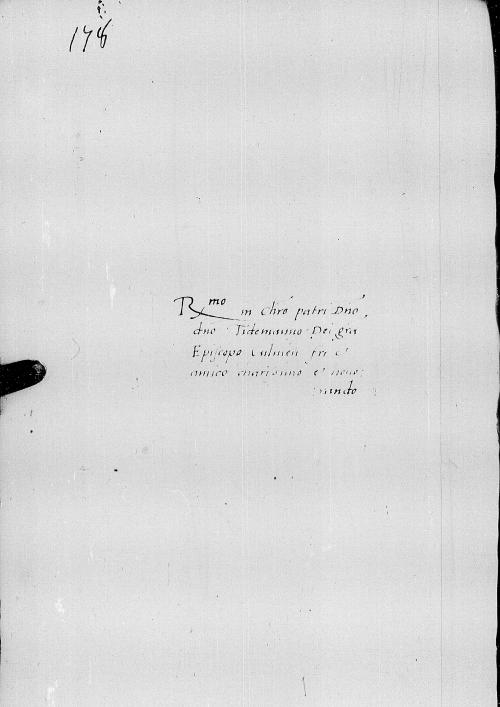 178
Rmo in Chro patri Dno,
dno Tidemanno Dei gra
Episcopo Culmen fri et
amico charissimo et hono
rando